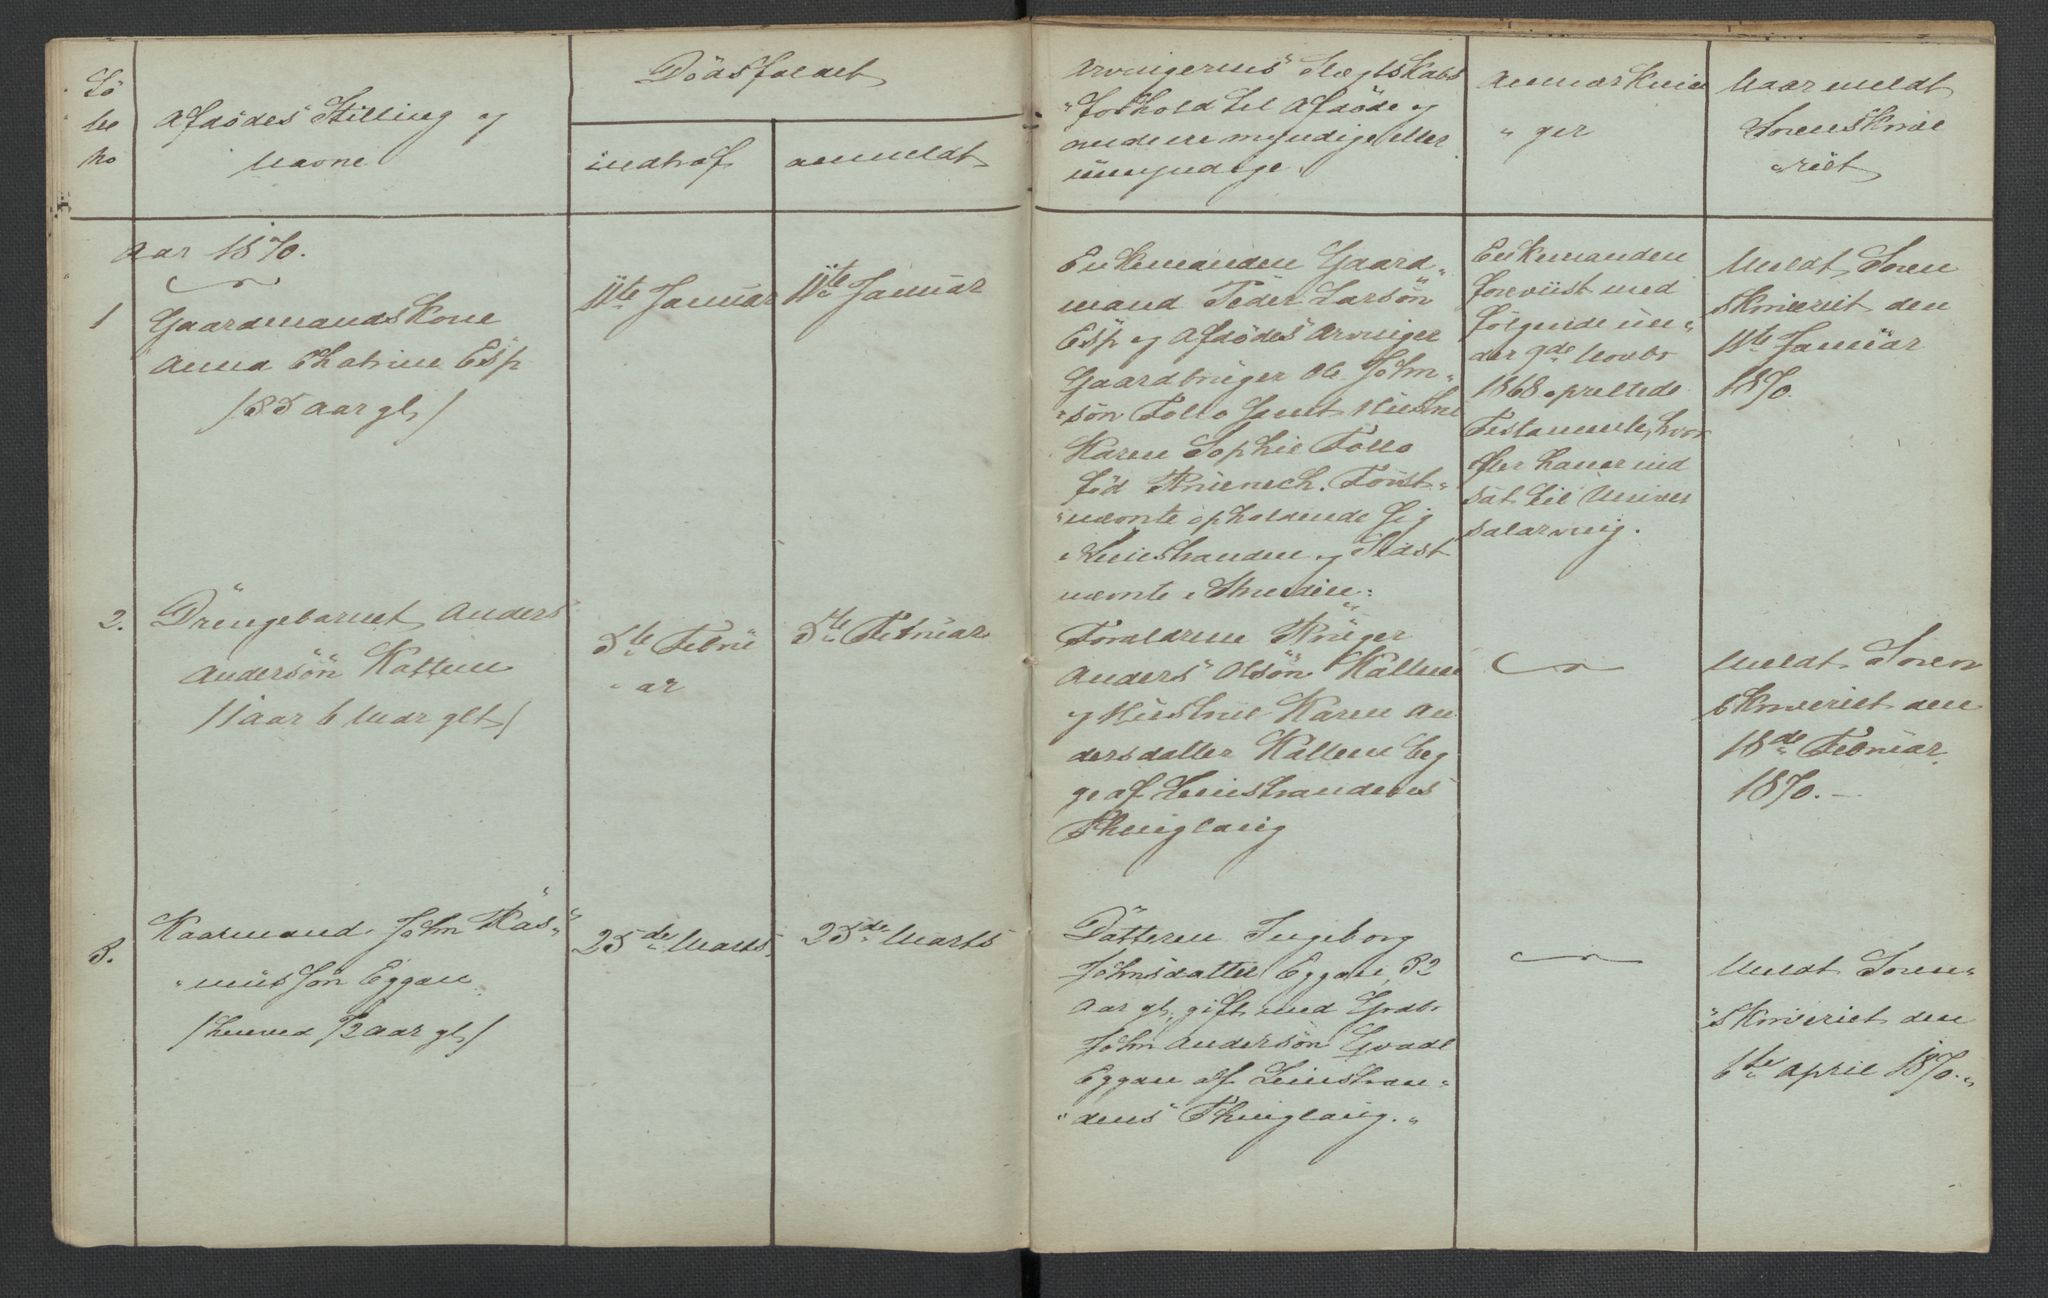 Lö
be
No
Afdödes Stilling og
Navne
Dödsfaldet
indtraf
anmeldt
Arvingernes Slægtskabs
"forhold til Afdöde og
om de ere myndige eller
umyndige.
Anmærknin
"ger
Naar meldt
Sorenskrive
"riet
Aar 1870.
1
Gaardmandskone
Anna Chatrine Esp
/85 Aar gl/
11te Januar
11te Januar
Enkemanden Gaard"
mand Peder Larsön
Esp og Afdödes Arvinger
Gaardbruger Ole John"
"sön Tollo samt Hustru
Karen Sophie Tollo
föd . Först"
"nævnte opholdende sig
i Leinstranden og Sidst
nævnte i
Enkemanden
foreviist med
fölgende un"
der 9de Novbr
1868 oprettede
Testamente, hvor
efter han er ind
sat til Univer
salarving.
Meldt Soren
skriveriet den
11te Januar
1870.
2.
Drengebarnet Anders
Andersön Kattem
/1 aar 6 Mdr glt/
5te Febru
"ar
5te Februar
Forældrene Bruger
Anders Olsön Kattem
og Hustrue Karen An
dersdatter Kattem beg
ge af Leinstrandens
Thinglaug
Meldt Soren
skriveriet den
18de Februar
1870.
3.
Kaarmand John Ras"
"mussön Eggan
/henved 72 Aar gl/
25de Marts
25de Marts
Datteren Ingeborg
Johnsdatter Eggan 32
Aar gl, gift med Grdbr
John Andersön Qvaal
Eggan af Leinstran"
"dens Thinglaug."
Meldt Soren"
"skriveriet den
6te April 1870."